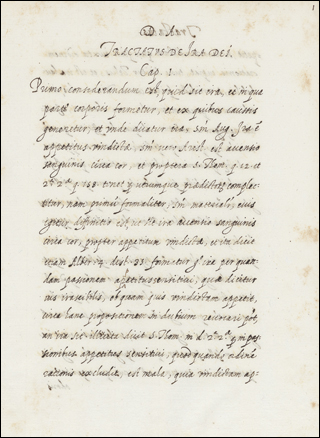 1
D.
TRACTATUS DE IRA DEI.
Cap. 1
Primo considerandum est quid sit ira, et in qua
parte corporis formetur, et ex quibus causis
generetur, et unde dicatur ira, Sm Aug. Ira è
appetitus vindictæ, Sm vero Arist. est accensio
sanguinis circa cor, et propterea S. Thom. q. 12 et
2ª 2ª q. 158. tenet utrumque prædictorum complec
titur, nam primū formaliter, Sm materiale,
definitio est, ut sit ira accensio sanguinis
circa cor, propter appetitum vindictæ, ut dicit
etiam Alber. 23. formetur ira per quan
dam passionem appetitus sensitivi, quæ dicitur
vis irascibilis, ob quam quis vindictam appetit,
circa hanc propositionem in dubium
an ira sit illicita dicit S. Thom. in d. 2ª 2ª q. in pas
sionibus appetitus sensitivi, quod quando ordinē
rationis excludit, est mala, quia vindictam ap-